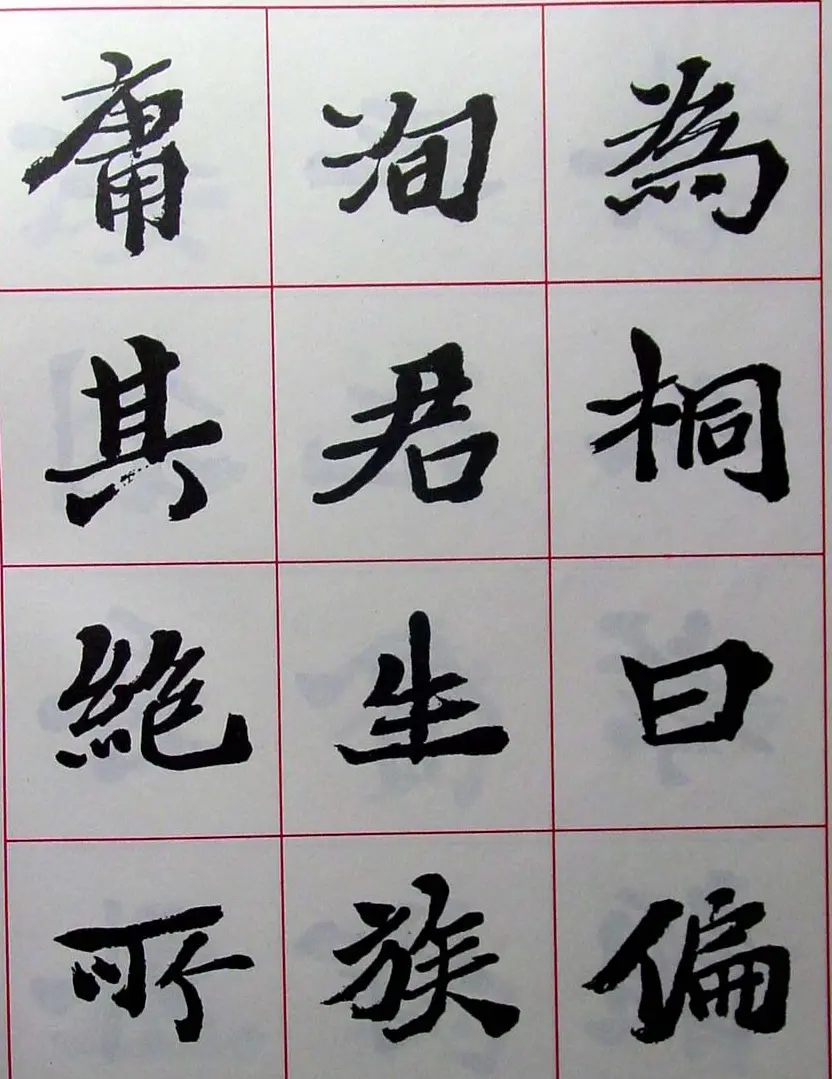 為桐曰偏
洵君生族
庸其絕所